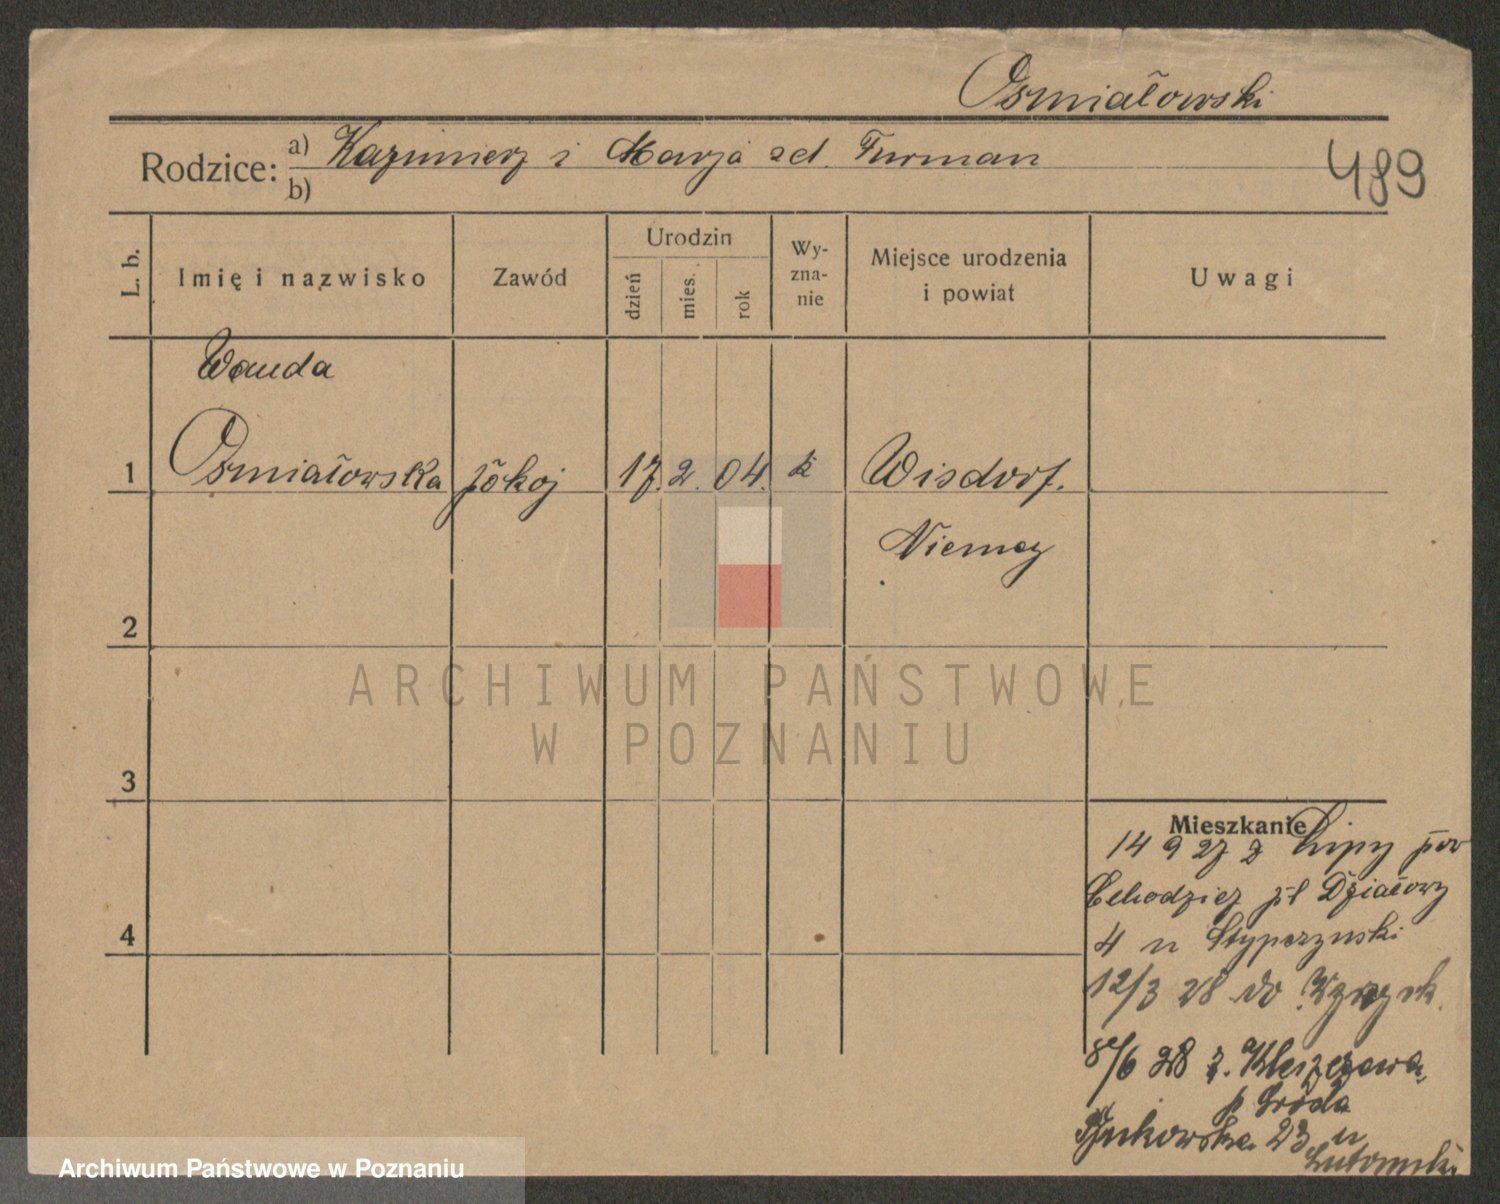 Ośmiałowski
Rodzice: a) Kazimierz i Marja zd. Furman
b)
489
L. b.
Imię i nazwisko
Zawód
Urodzin
dzień
mies.
rok
Wy-
zna-
nie
Miejsce urodzenia
i powiat
Uwagi
Wanda
1 Ośmiałowska pokoj 17. 2. 04. k Wisdorf.
Niemcy
2
ARCHIWUM PAŃSTWOWE
W POZNANIU
3
Mieszkanie
14 9 27 z Lipy pow
Chodzież pl Działowy
4
4 u Stypczynski
12/3 28 do
8/6 28 z.
p Środa
Bukowska 23 u
Archiwum Państwowe w Poznaniu